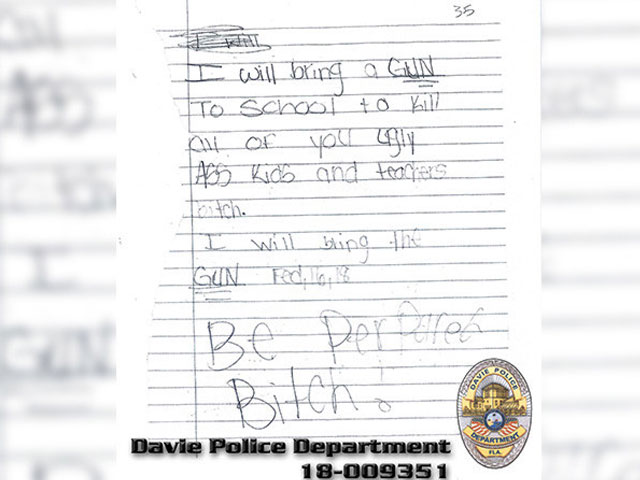 35
I will
I will bring a GUN
To School to Kill
all of you ugly
Ass Kids and teachers
bitch.
I will bring the
GUN Fed,16,18
Be Perpared
Bitch!
Davie Police Department
18-009351
DAVIE POLICE
DEPARTMENT
FLA.